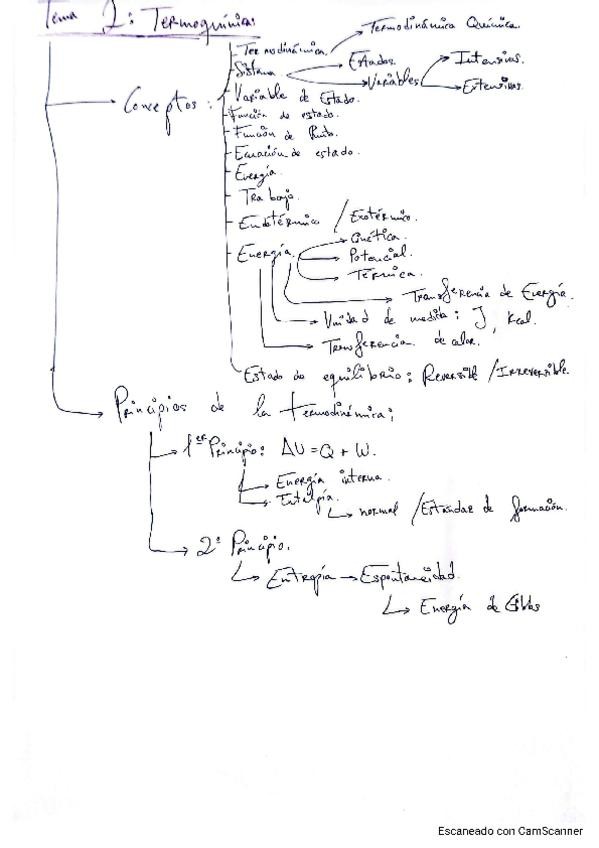 Tema 2: Termoquímica:
Conceptos:
Termodinámica. Termodinámica Química.
Sistema Estados. Variables Intensivas. Extensivas.
Variable de Estado.
Función de estado.
Función de Punto.
Ecuación de estado.
Energía.
Trabajo.
Endotérmico / Exotérmico.
Energía. Cinética.
Potencial.
Térmica.
Transferencia de Energía.
Unidad de medida: J, Kcal.
Transferencia de calor.
Estado de equilibrio: Reversible / Irreversible.
Principios de la termodinámica:
1er Principio: ΔU = Q + W.
Energía interna.
Entalpía.
normal / Estándar de formación.
2º Principio.
Entropía → Espontaneidad.
Energía de Gibbs
Escaneado con CamScanner